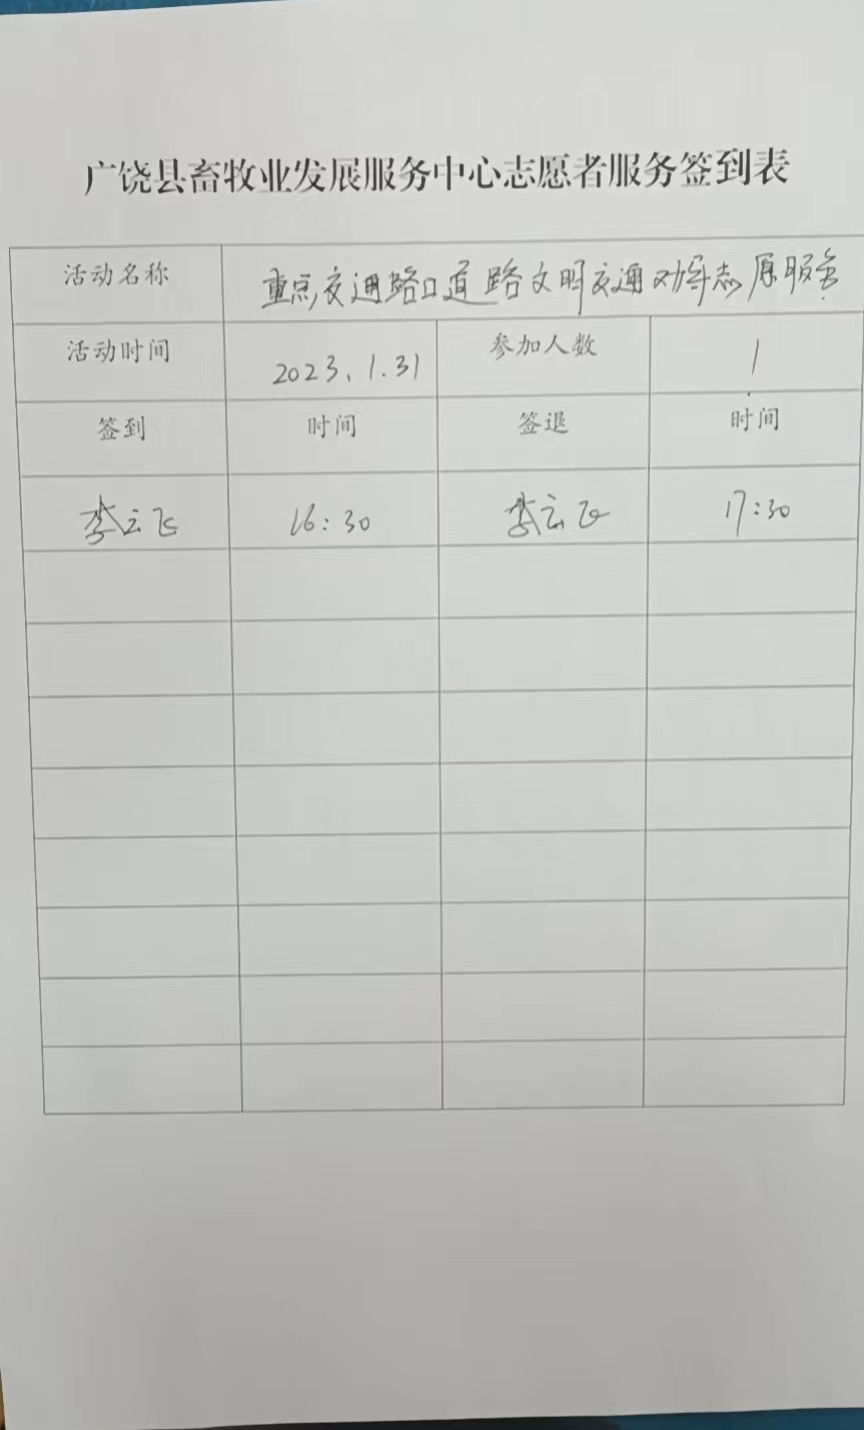 广饶县畜牧业发展服务中心志愿者服务签到表
活动名称 重点交通路口道路文明交通劝导志愿服务
活动时间 2023.1.31 参加人数 1
签到 时间 签退 时间
李云飞 16:30 李云飞 17:30